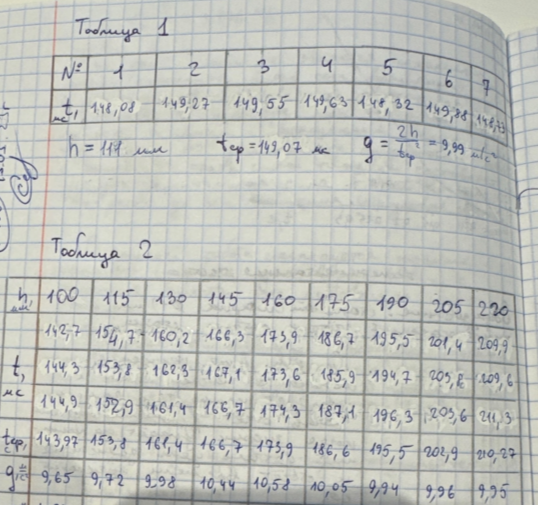 Таблица 1
№ 1 2 3 4 5 6 7
t, мс 148,08 149,27 149,55 149,63 148,32 149,88
h = 111 мм tср = 149,07 мс g = 2h/tср² = 9,99 м/с²
Таблица 2
h, мм 100 115 130 145 160 175 190 205 220
t, мс
142,7 154,7 160,2 166,3 173,9 186,7 195,5 201,4 209,9
144,3 153,8 162,3 167,1 173,6 185,9 194,7 209,6
144,9 152,9 161,4 166,7 174,3 187,1 196,3 203,6 211,3
tср, с 143,97 153,8 161,4 166,7 173,9 186,6 195,5 202,9 210,27
g, м/с² 9,65 9,72 9,98 10,44 10,58 10,05 9,94 9,96 9,95